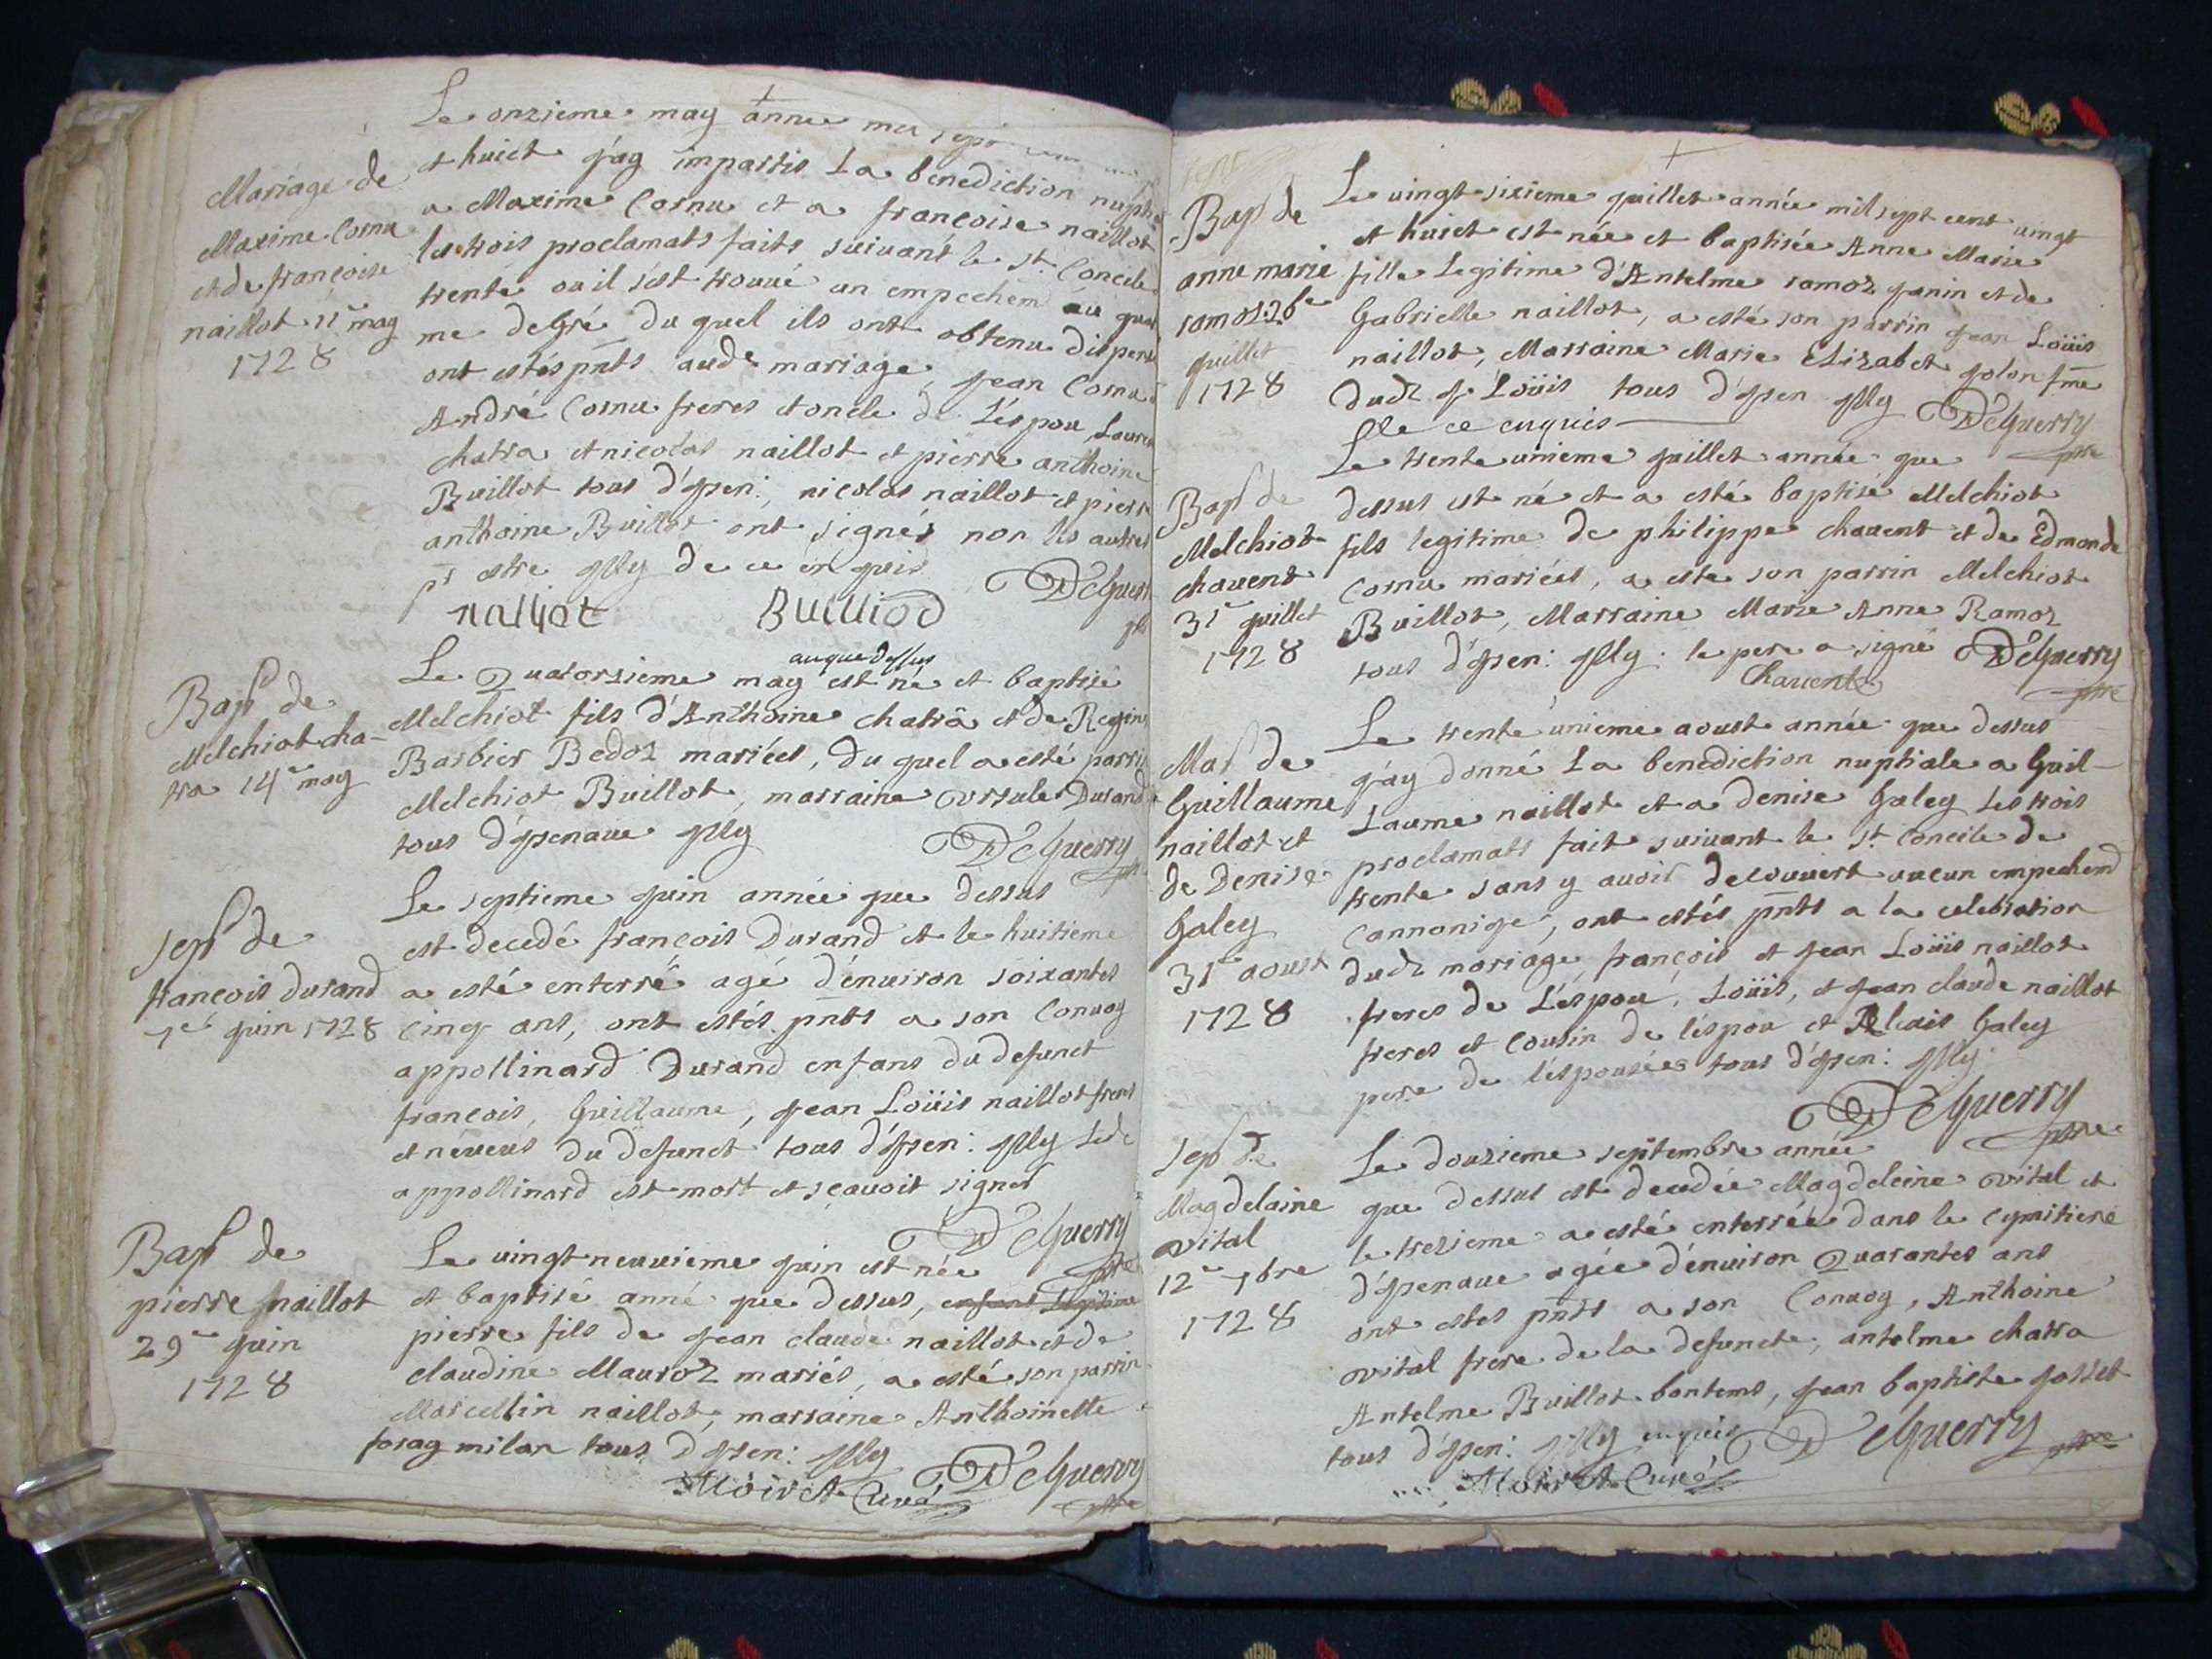 Mariage de
Maxime Cornu
et de françoise
naillot 11e may
1728
Le onzieme may année mil sept
et huict j'ay impartis La benediction nuptia
a Maxime Cornu et a françoise naillot
les trois proclamats faits suivant le st. Concile
trente ou il s'est trouvé un empechem au quat
me degré du quel ils ont obtenu dispens
ont estés pnts aud mariage, jean Cornu
André Cornu freres et oncle de L'éspou, Laure
chatra et nicolas naillot et pierre anthoine
Buillot tous d'ysen: nicolas naillot et pierre
anthoine Buillot ont signés non les autres
pr estre jlly de ce en quis
DeGuerr
nalliot Builliod
Bap de
Melchiot cha-
tra 14e may
auque dessus
Le Quatorzieme may est né et baptisé
Melchiot fils d'Anthoine chatrâ et de Regine
Barbier Bedoz mariées, Du quel a esté parrin
Melchiot Buillot, marraine Ursule Durand
tous d'ysenave jlly DeGuerry
Sep de
francois Durand
7e juin 1728
Le septieme juin année que dessus
est decedé françois Durand et le huitieme
a esté enterré agé d'énuiron soixantes
cinq ans, ont estés pnts a son Convoy
appollinard Durand enfans du defunct
françois, Guillaume, jean Loüis naillot freres
et neveus du defunct tous d'ysen: jlly Led
appollinard est mort et sçavoit signer
DeGuerry
ptre
Bap de
pierre naillot
29e juin
1728
Le vingt neuvieme juin est née
et baptisé anné que dessus, enfant Legitime
pierre fils de jean claude naillot et de
claudine Mauroz mariés, a esté son parrin
Marcellin naillot, marraine Anthoinette
foray milan tous D'ysen: jlly
Moiret Curé DeGuerry
ptre
Bap de
anne marie
ramoz 26e
juillet
1728
Le vingt sixieme juillet année mil sept cent vingt
et huict est née et baptisée Anne Marie
fille Legitime d'Antelme ramoz janin et de
Gabrielle naillot, a esté son parrin jean Loüis
naillot, Marraine Marie Elizabet jolon fme
dud j Loüis tous d'ysen jlly DeGuerry
de ce enquis ptre
Bap de
Melchiot
chavent
31e juillet
1728
Le trente unieme juillet année que
dessus est né et a esté baptisé Melchiot
fils legitime de philippe chavent et de Edmonde
Cornu mariées, a esté son parrin Melchiot
Buillot, Marraine Marie Anne Ramoz
tous d'ysen: jlly: le pere a signé DeGuerry
Chavent ptre
Mar de
Guillaume
naillot et
de Denise
Galey
31e aoust
1728
Le trente unieme aoust année que dessus
j'ay donné La benediction nuptiale a Guil-
Laume naillot et a Denise Galey Les trois
proclamats fait suivant le st Concile de
trente sans y avoir decouvert aucun empechem
cannonige, ont estés pnts a la celebration
dud mariage, françois et jean Loüis naillot
freres de L'éspou, Loüis, et jean claude naillot
freres et Cousin de l'éspou et Alexis Galey
pere de l'éspousée tous d'ysen: jlly
DeGuerry
ptre
Sep de
Magdelaine
vital
12e 7bre
1728
Le douzieme septembre année
que dessus est decedée Magdeleine vital et
le trezieme a esté enterrée dans le cymitiere
d'ysenave agée d'énuiron Quarantes ans
ont estes pnts a son Convoy, Anthoine
vital frere de la defuncte, antelme chatra
Antelme Buillot bontems, jean baptiste josset
tous d'ysen: jlly enquis DeGuerry ptre
Moiret Curé